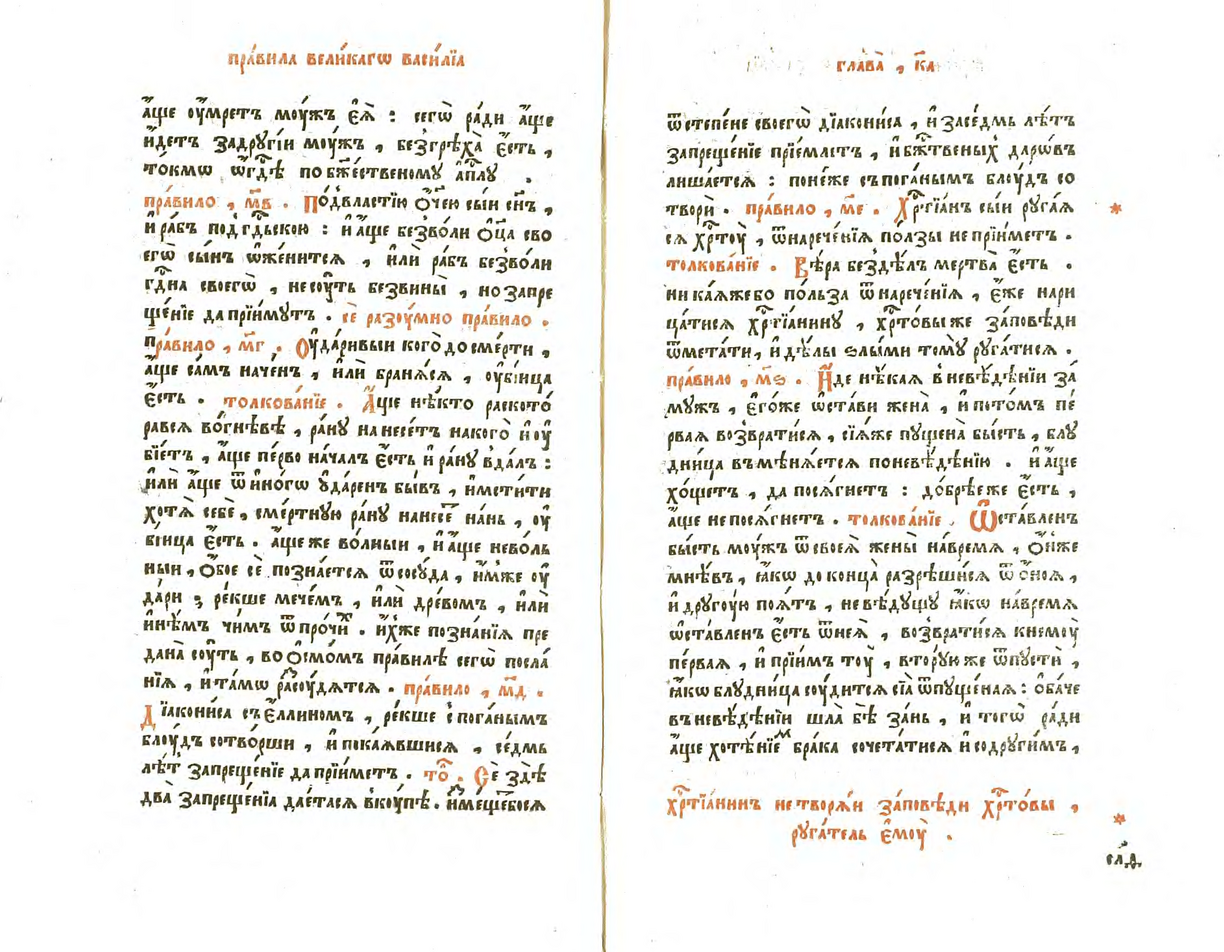 пра́вила вели́кагѡ васи́лїа
а҆́ще ᲂу҆́мретъ моу́жъ є҆ѧ̀ : сегѡ̀ ра́ди а҆́ще
и҆́детъ задругі́и моу́жъ , безгрѣха̀ є҆́сть ,
то́кмѡ ѡ҆гдѣ̀ побж҃е́ственому а҆пⷭ҇лу .
пра́вило , м҃в . Подвла́стїю ѻ҆́чею сы́и сн҃ъ ,
и҆ ра́бъ подгдⷭ҇ькою : и҆ а҆́ще безво́ли ѻ҆ц҃а сво
егѡ̀ сы́нъ ѡ҆же́нитсѧ , и҆лѝ ра́бъ безво́ли
гдⷭ҇на своегѡ̀ , несоу́ть безвины̀ , но запре
ще́нїе да прїи́мутъ . сѐ разоу́мно пра́вило .
пра́вило , м҃г . Оу҆да́ривыи кого̀ до сме́рти ,
а҆́ще са́мъ наче́нъ , и҆лѝ бранѧ́сѧ , ᲂу҆бі́ица
є҆́сть . толкова́нїе . А҆́ще нѣ́кто раското́
равсѧ во́гнѣвѣ , ра́ну нанесе́тъ на кого̀ и҆ ᲂу҆
бїе́тъ , а҆́ще пе́рво нача́лъ є҆́сть и҆ ра́ну вда́лъ :
и҆лѝ а҆́ще ѿ и҆но́гѡ ᲂу҆да́ренъ бы́въ , и҆ мсти́ти
хотѧ̀ себѐ , сме́ртную ра́ну нанесѐ на́нь , ᲂу҆
бі́ица є҆́сть . а҆́ще же во́лныи , и҆ а҆́ще нево́ль
ныи , ѻ҆́бое сѐ позна́етсѧ ѿ сосу́да , и҆́мже ᲂу҆
да́ри ; ре́кше мече́мъ , и҆лѝ дре́вомъ , и҆лѝ
и҆нѣ́мъ чи́мъ ѿ про́чиⷯ . и҆́хже позна́нїѧ пре
дана̀ соу́ть , во ѻ҆смо́мъ пра́вилѣ сегѡ̀ посла́
нїѧ , и҆ та́мѡ ра́соудѧтсѧ . пра́вило , м҃д .
Дїакони́са съ є҆́ллиномъ , ре́кше с пога́нымъ
блоу́дъ сотво́рши , и҆ пока́ѧвшисѧ , се́дмь
лѣ́тъ запреще́нїе да прїи́метъ . то́ . Сѐ здѣ̀
два̀ запреще́нїѧ дае́тасѧ вкоу́пѣ . и҆́мѣщебосѧ
глава̀ , к҃а
ѿ степе́не своегѡ̀ дїакони́са , и҆ за се́дмь лѣ́тъ
запреще́нїе прїе́млетъ , и҆ бжⷭ҇твеныхъ даро́въ
лиша́етсѧ : поне́же съ пога́нымъ блоу́дъ со
творѝ . пра́вило , м҃е . Хрⷭ҇тїа́нъ сы́и руга́ѧ
сѧ хрⷭ҇тоу̀ , ѿ нарече́нїѧ по́лзы не прїи́метъ .
толкова́нїе . Вѣ́ра без дѣ́лъ мертва̀ є҆́сть .
ни ка́ѧже бо по́льза ѿ нарече́нїѧ , є҆́же нари
ца́тисѧ хрⷭ҇тїа́нину , хрⷭ҇то́вы же за́повѣди
ѿмета́ти , и҆ дѣ́лы ѕлы́ми тому̀ руга́тисѧ .
пра́вило , м҃ѕ . И҆́де нѣ́каѧ в невѣ́дѣнїи за́
мужъ , є҆го́же ѡ҆ста́ви жена̀ , и҆ пото́мъ пе́
рваѧ возврати́сѧ , сїѧ́же пуще́на бы́сть , блу
дни́ца въмѣнѧ́етсѧ по невѣ́дѣнїю . и҆ а҆́ще
хо́щетъ , да посѧ́гнетъ : добрѣ́е же є҆́сть ,
а҆́ще не посѧ́гнетъ . толкова́нїе . Ѿста́вленъ
бы́сть моу́жъ ѿ своеѧ̀ жены̀ на́времѧ , ѻ҆́нже
мнѣ́въ , ꙗ҆́кѡ до конца̀ разрѣши́сѧ ѿ ѻ҆́ноѧ ,
и҆ другоу́ю поѧ́тъ , не вѣ́дущу ꙗ҆́кѡ на́времѧ
ѡ҆ста́вленъ є҆́сть ѿ неѧ̀ , возврати́сѧ к немоу̀
пе́рваѧ , и҆ прїи́мъ тоу̀ , втору́ю же ѿпустѝ ,
ꙗ҆́кѡ блудни́ца соу́дитсѧ сїа̀ ѿпуще́наѧ : ѻ҆ба́че
въ невѣ́дѣнїи шла̀ бѣ̀ за́нь , и҆ тогѡ̀ ра́ди
а҆́ще хотѣ́нїеⷨ бра́ка сочета́тисѧ и҆ со други́мъ ,
хрⷭ҇тїа́нинъ не творѧ́и за́повѣди хрⷭ҇то́вы ,
руга́тель є҆моу̀ .